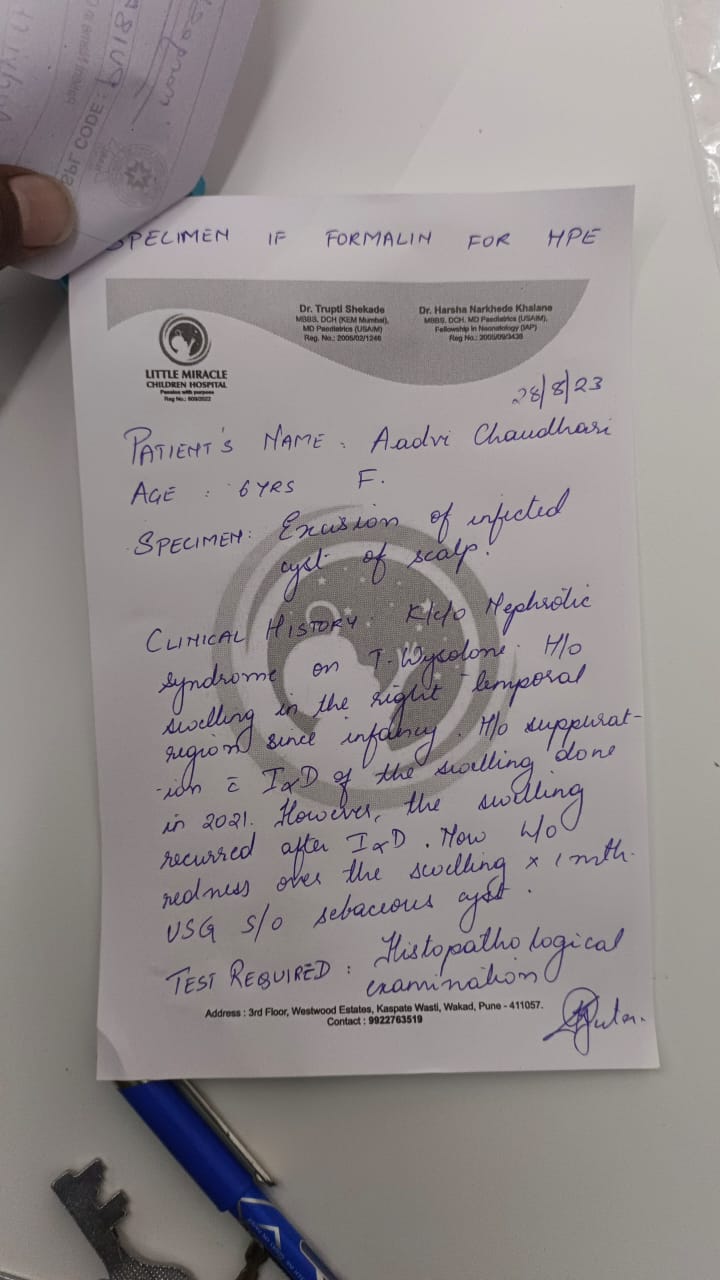 SPL CODE:
SPECIMEN IF FORMALIN FOR HPE
Dr. Trupti Shekade
MBBS, DCH (KEM Mumbai),
MD Paediatrics (USAIM)
Reg. No.: 2005/02/1246
Dr. Harsha Narkhede Khalane
MBBS, DCH, MD Paediatrics (USAIM),
Fellowship in Neonatology (IAP)
Reg No.: 2005/09/3438
LITTLE MIRACLE
CHILDREN HOSPITAL
Passion with purpose
28/8/23
PATIENT'S NAME : Aadvi Chaudhari
AGE : 6 YRS F.
SPECIMEN: Excision of infected
cyst of scalp.
CLINICAL HISTORY K/c/o Nephrotic
syndrome on T. Wysolone. H/o
swelling in the right temporal
region since infancy. H/o suppurat-
-ion c̄ I&D of the swelling done
in 2021. However, the swelling
recurred after I&D. Now
redness over the swelling x 1 mth.
USG s/o sebaceous cyst.
TEST REQUIRED : Histopathological
examination
Address : 3rd Floor, Westwood Estates, Kaspate Wasti, Wakad, Pune - 411057.
Contact : 9922763519